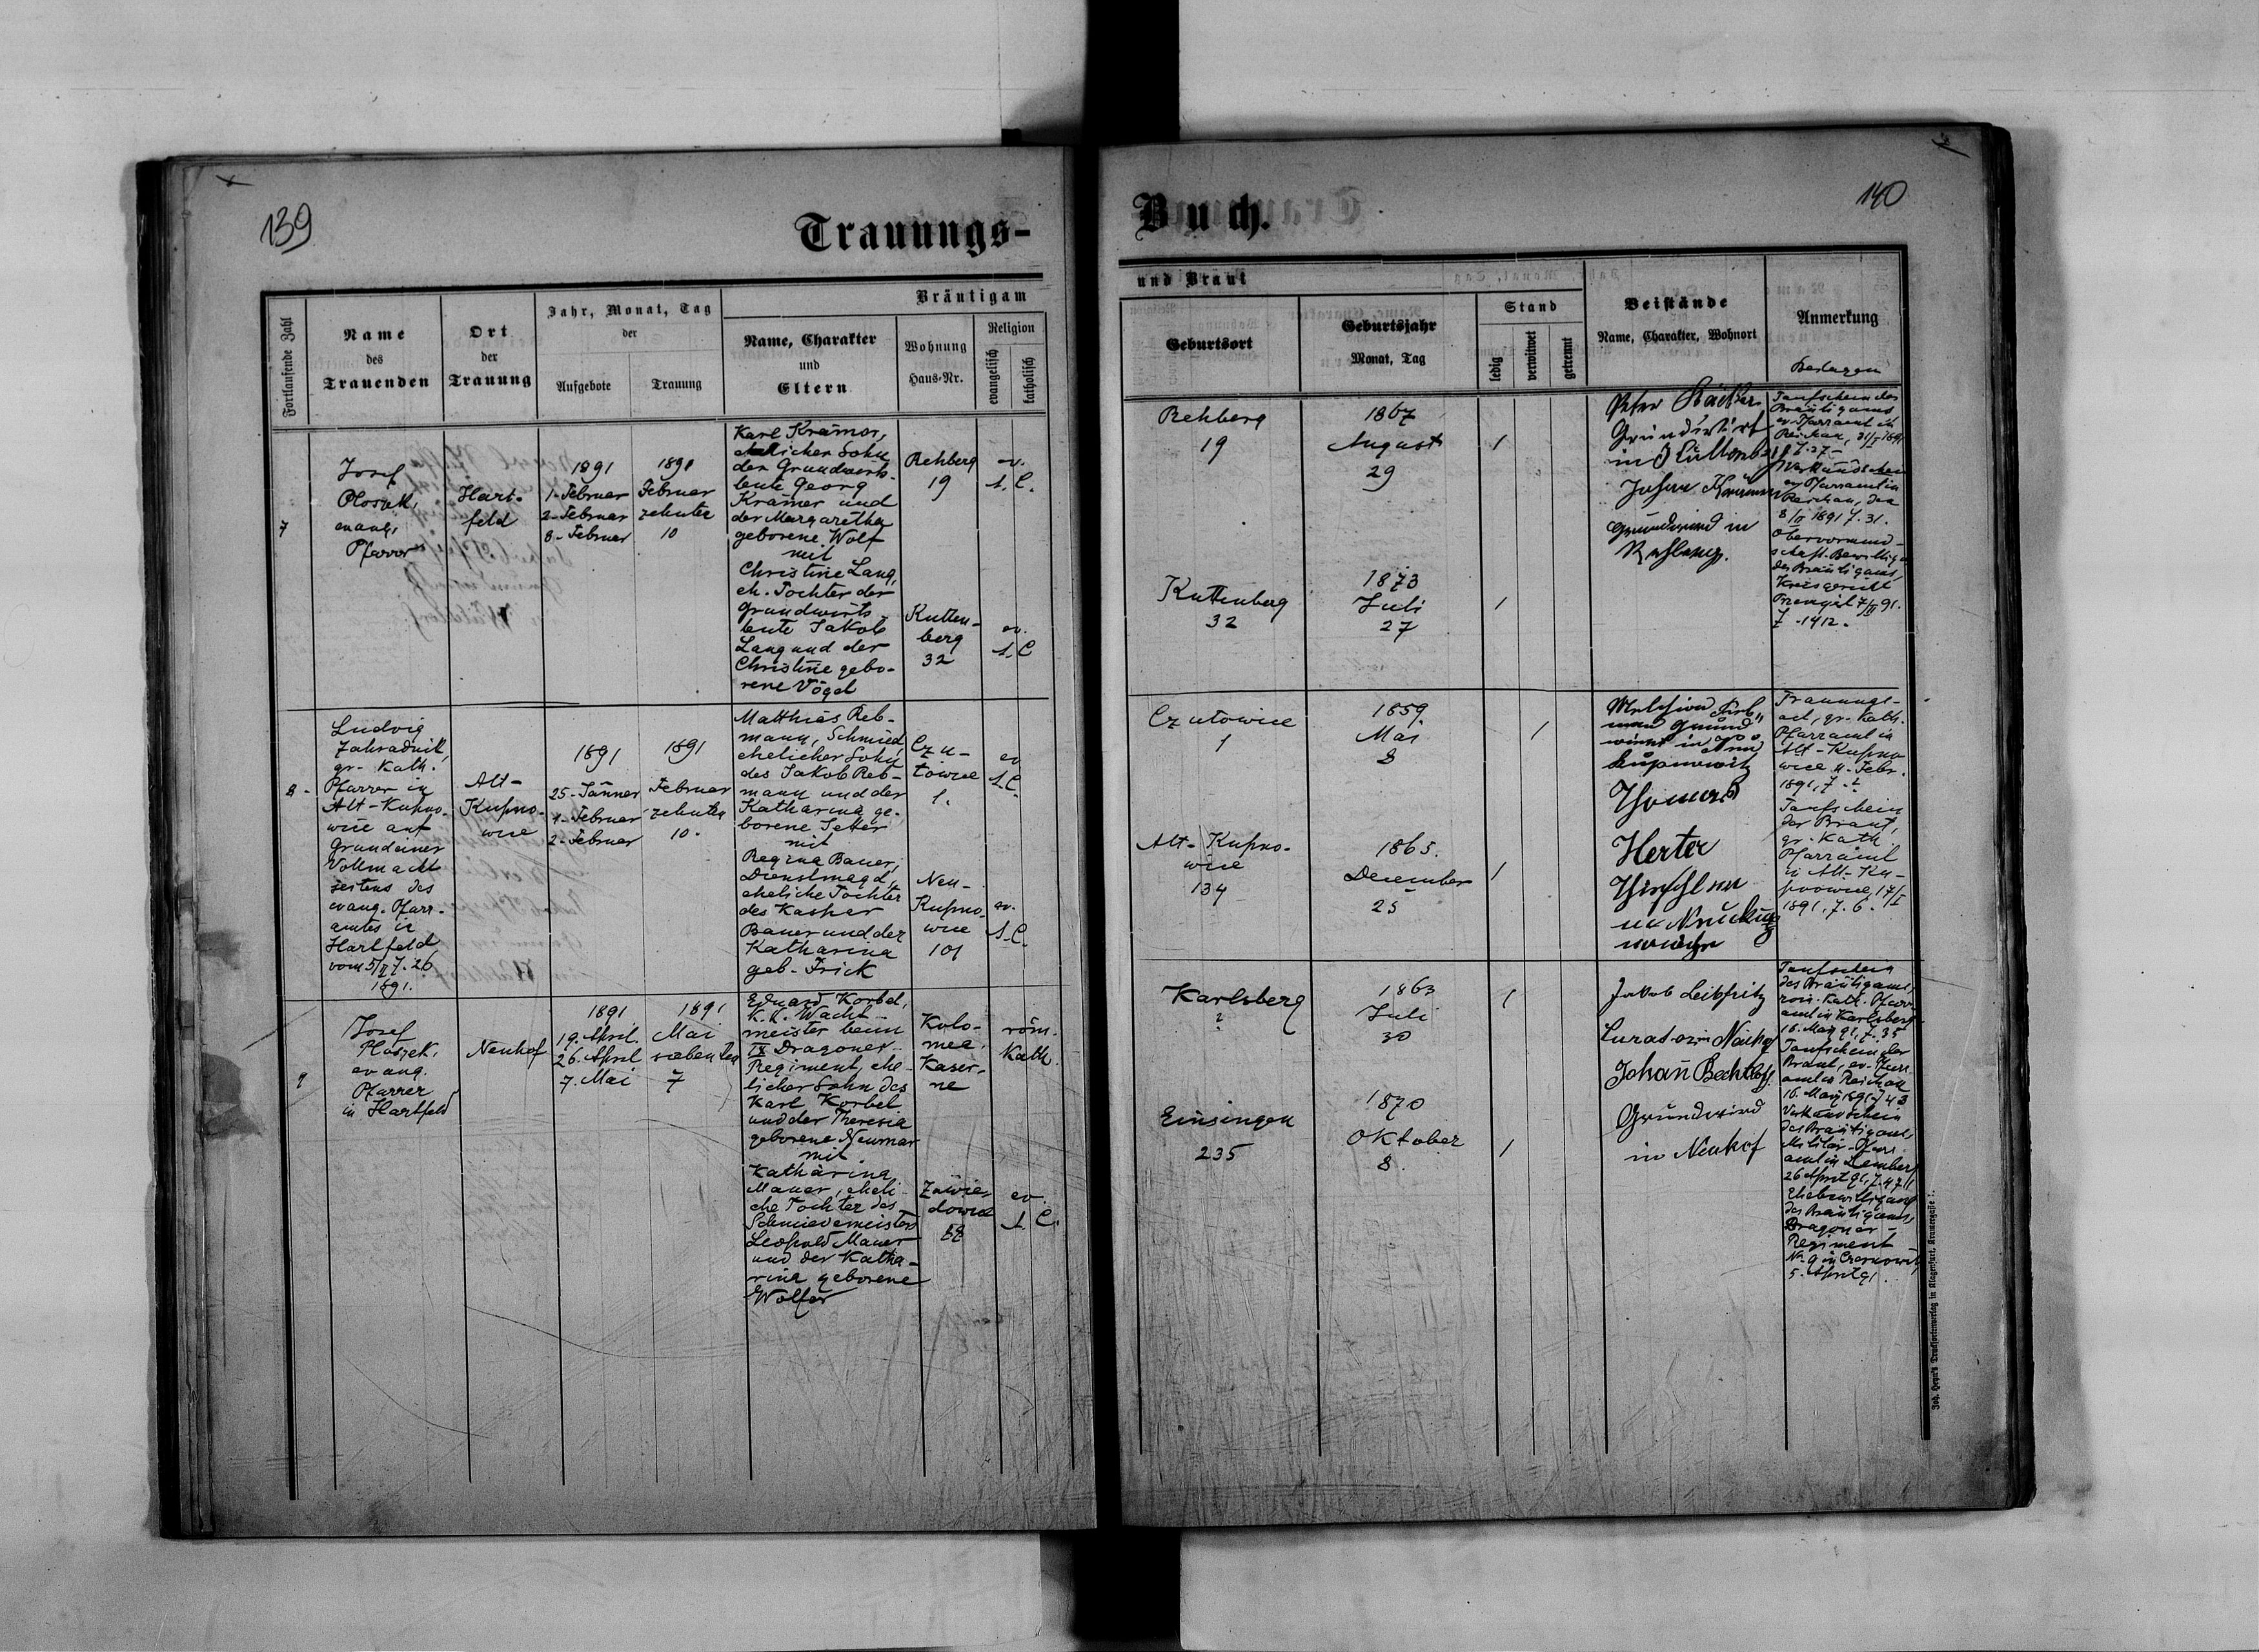 139
Trauungs-
Fortlaufende Zahl
Name
des
Trauenden
Ort
der
Trauung
Jahr, Monat, Tag
der
Aufgebote
Trauung
Bräutigam
Name, Charakter
und
Eltern
Wohnung
Haus-Nr.
Religion
evangelisch
katholisch
7
Josef
evang.
Pfarrer
Hart-
feld
1891
1. Februar
2. Februar
8. Februar
1891
Februar
zehnter
10
Karl Krämer,
ehelicher Sohn
der Grundwirts-
leute Georg
Krämer und
der Margaretha
geborene Wolf
mit
Christine Lang,
eh. Tochter der
Grundwirts
leute Jakob
Lang und der
Christine gebo-
rene Vögel
Rehberg
19
Kutten-
berg
32
ev.
A. C.
ev.
A. C
8.
Ludwig
Zahradnik,
gr. Kath.
Pfarrer in
Alt-Kupno-
wice auf
Grund einer
Vollmacht
seitens des
evang. Pfarr-
amtes in
Hartfeld
vom 5/II Z. 26
1891.
Alt-
Kupno-
wice
1891
25. Jänner
1. Februar
2. Februar
1891
Februar
zehnter
10.
Matthias Reb-
mann, Schmied,
ehelicher Sohn
des Jakob Reb-
mann und der
Katharina ge-
borene
mit
Regina Bauer,
Dienstmagd,
eheliche Tochter
des Kaspar
Bauer und der
Katharina
geb. Frick
Czu-
towice
1.
Neu-
Kupno-
wice
101
ev
A. C.
ev.
A. C.
9
Josef
Ploszek,
evang.
Pfarrer
in Hartfeld
Neuhof
1891
19. April
26. April
7. Mai
1891
Mai
siebenter
7
Eduard Korbel,
K. K. Wacht-
meister beim
IX Dragoner-
Regiment, ehe-
licher Sohn des
Karl Korbel
und der Theresia
geborene Neumar
mit
Katharina
Mauer, eheli-
che Tochter des
Schmiedemeisters
Leopold Mauer
und der Katha-
rina geborene
Wolfer
Kolo-
mea,
Kaser-
ne
Zawie-
dowice
röm.
Kath.
ev.
A. C.
140
Buch.
und Braut
Geburtsort
Geburtsjahr
Monat, Tag
Stand
ledig
verwitwet
getrennt
Beistände
Name, Charakter, Wohnort
Anmerkung
Beilagen
Rehberg
19
1867
August
29
1
Kuttenberg
32
1873
Juli
27
1
Peter
Grundwirt
in Kuttenberg
Johann Krämer
Grundwirt in
Rehberg.
Taufschein des
Bräutigams,
ev. Pfarramt in
Reichau,
Z. 27-
Verkündschein
ev. Pfarramt in
Reichau, dto
8/II 1891 Z. 31.
Obervormund-
schaft. Bewillig.
des Bräutigams,
Kreisgericht
Przemysl 7/II 91.
Z. 1412.
Czutowice
1
1859.
Mai
8
1
Alt-Kupno-
wice
134
1865.
December
25
1
Thomas
Herter
Trauungs-
act, gr. Kath.
Pfarramt in
Alt-Kupno-
wice 11. Febr.
1891, Z.
Taufschein
der Braut,
gr. Kath.
Pfarramt
in Alt-Ku-
pnowice, 17/I
1891, Z. 6.
Karlsberg
?
1863
Juli
30
1
Einsingen
235
1870
Oktober
8.
1
Jakob Leibfritz
Curator in Neuhof
Johann Bechtloff
Grundwirt
in Neuhof
Taufschein
des Bräutigams,
röm. Kath. Pfarr-
amt in Karlsberg
16. März 91, Z. 35
Taufschein der
Braut, ev. Pfarr-
amt in Reichau
16. März 1891 Z 43
Verkündschein
des Bräutigams,
Militär-Pfarr-
amt in Lemberg
26 April 91, Z. 4711
Ehebewilligung
des Bräutigams,
Dragoner-
Regiment
No. 9 in Czernowitz
5. April 91.
Joh. Heyn's Drucksortenverlag in Klagenfurt, Kramergasse